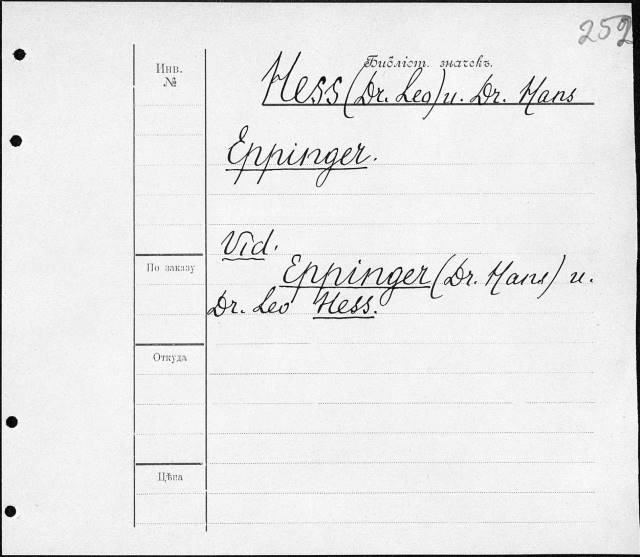 252
Инв.
№
Библіот. значекъ.
Hess (Dr. Leo) u. Dr. Hans
Eppinger.
Vid.
По заказу
Eppinger (Dr. Hans) u.
Dr. Leo Hess.
Откуда
Цѣна